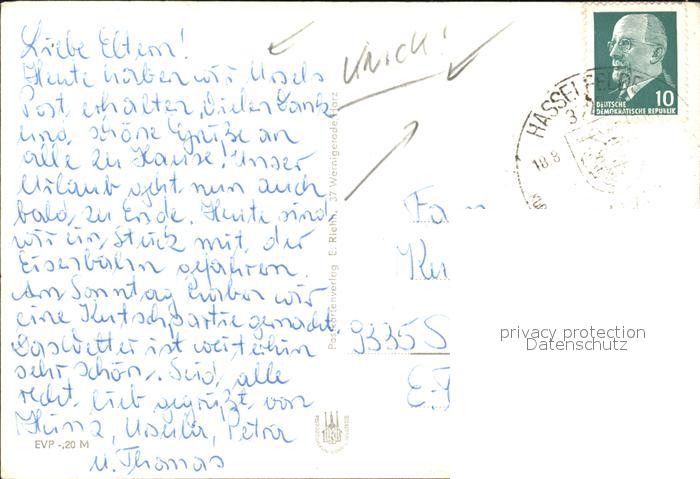 Liebe Eltern!
Heute haben wir Ursels
Post erhalten, vielen Dank
und schöne Grüße an
alle zu Hause. Unser
Urlaub geht nun auch
bald zu Ende. Heute sind
wir ein Stück mit der
Eisenbahn gefahren.
Am Sonntag haben wir
eine Kutschpartie gemacht.
Das Wetter ist weiterhin
sehr schön. Seid alle
recht lieb gegrüßt von
Heinz, Ursula, Petra
u. Thomas
EVP -,20 M
Postkartenverlag E. Riehn, 37 Wernigerode/Harz
DEUTSCHE
DEMOKRATISCHE REPUBLIK
10
HASSELFELDE
18.8
Fa
9335 S
privacy protection
Datenschutz